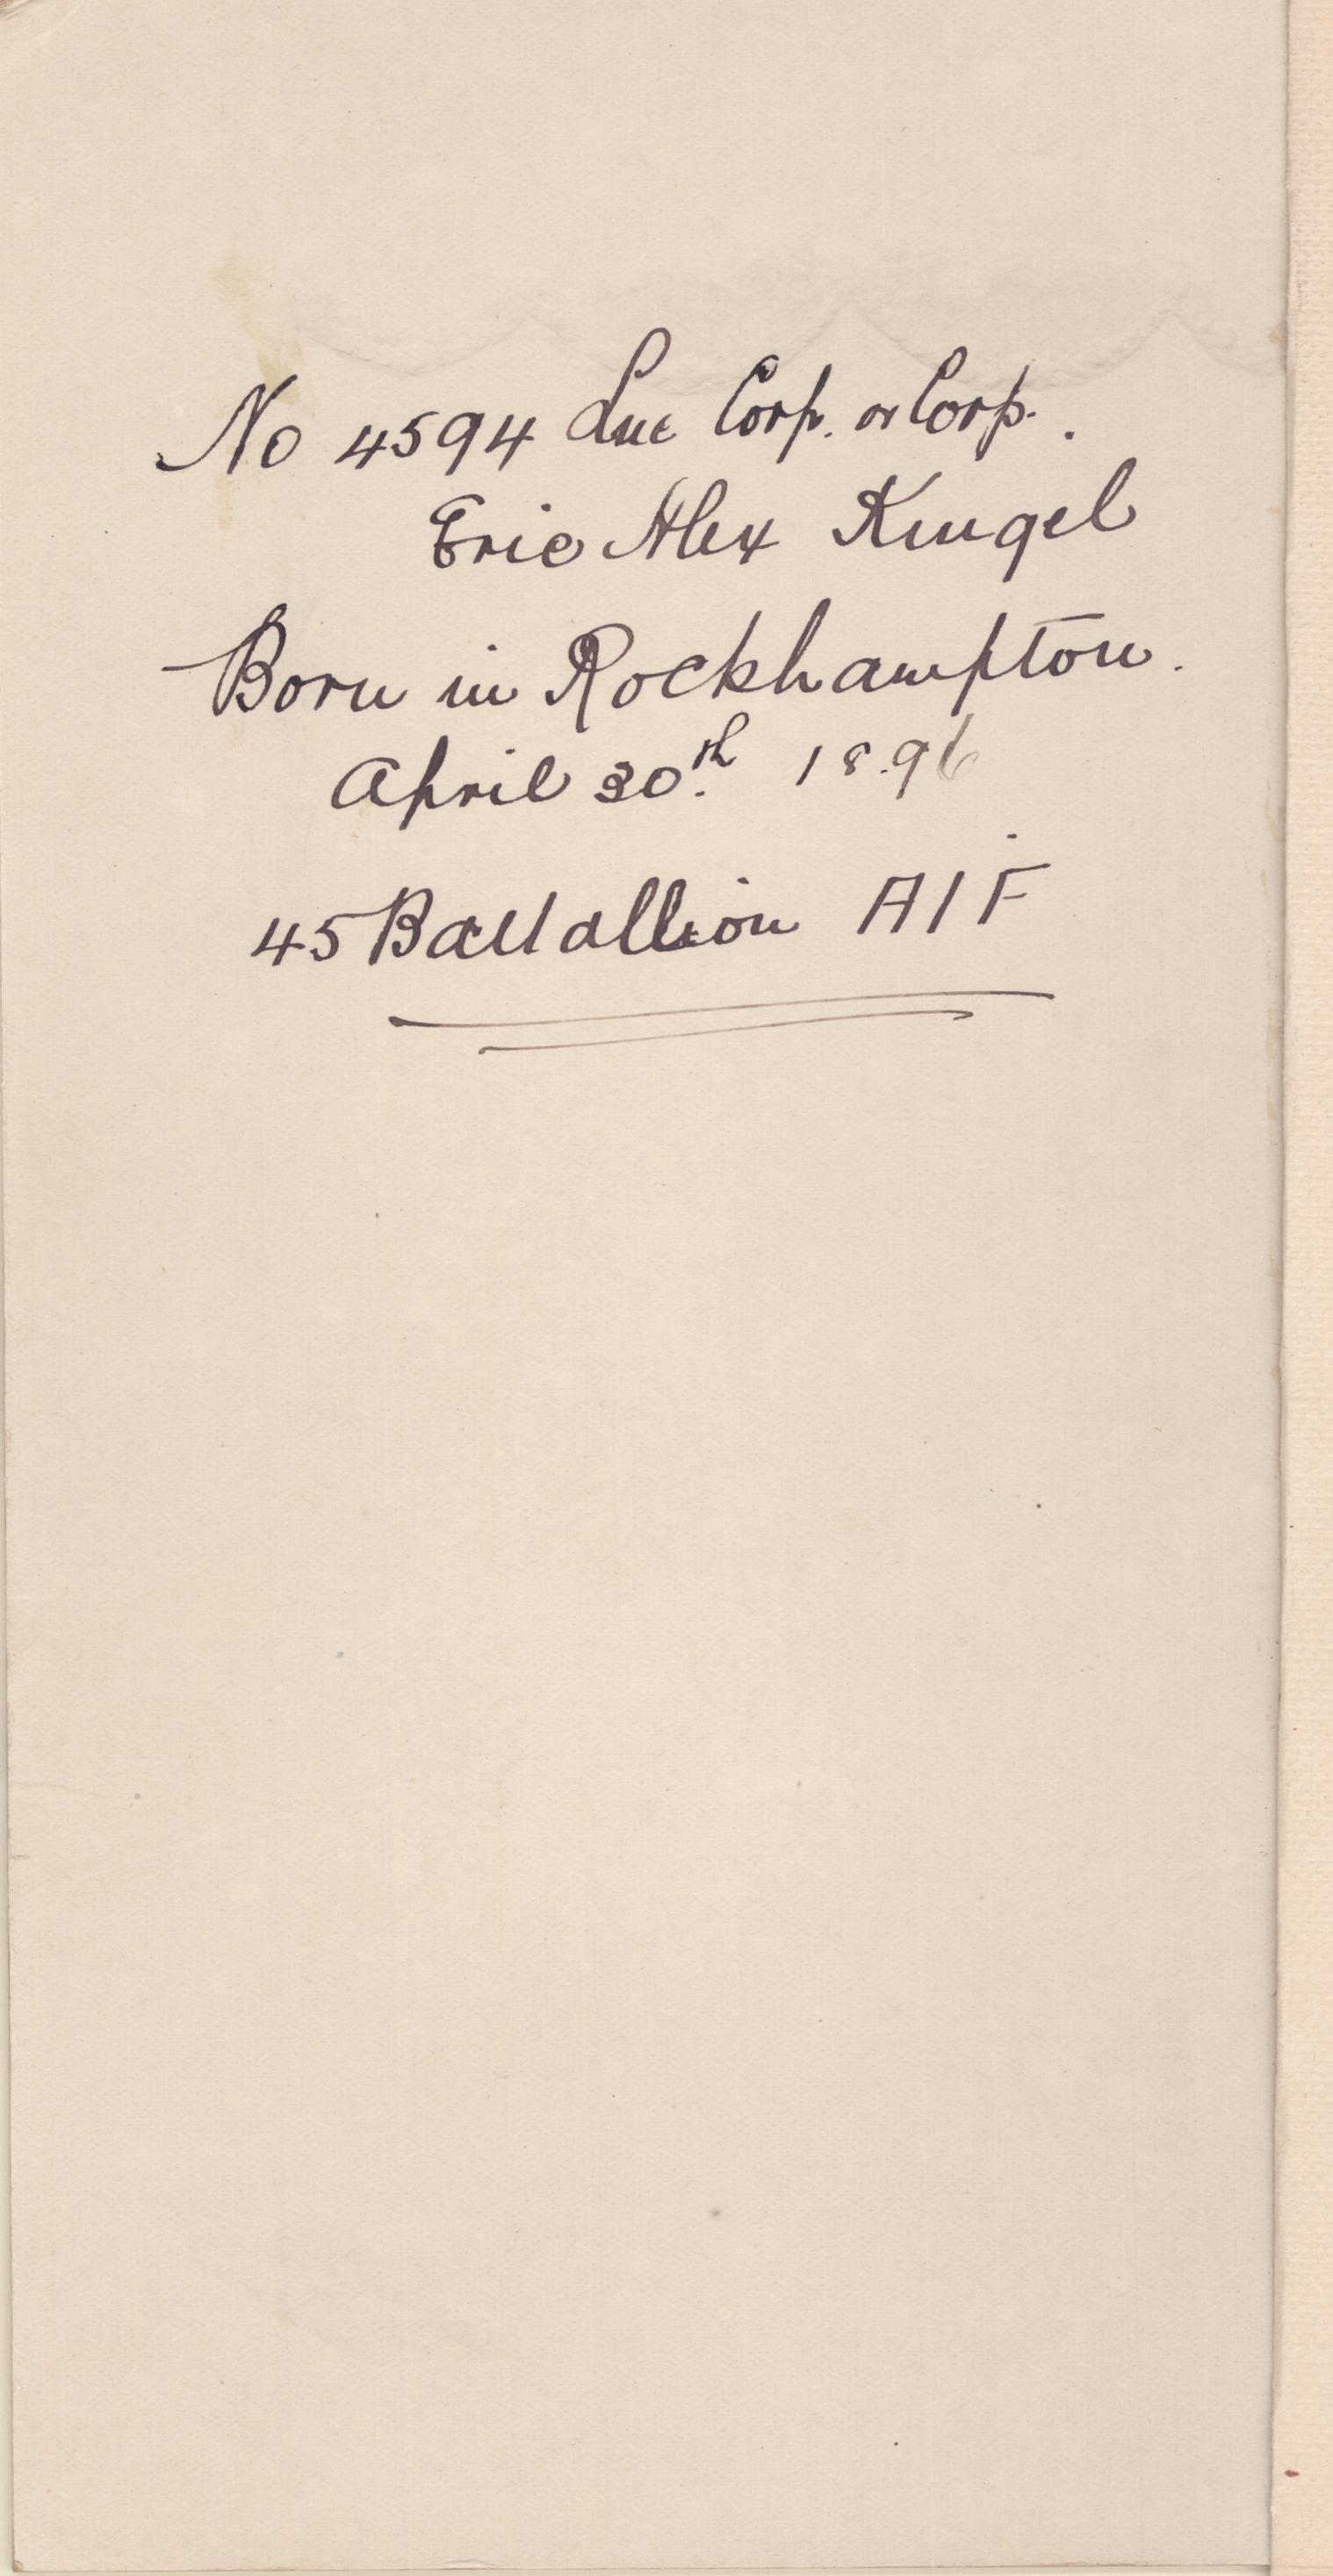 No 4594 Lne Corp. or Corp.
Eric Alex Kingel
Born in Rockhampton.
April 30th. 1896
45 Battallion AIF